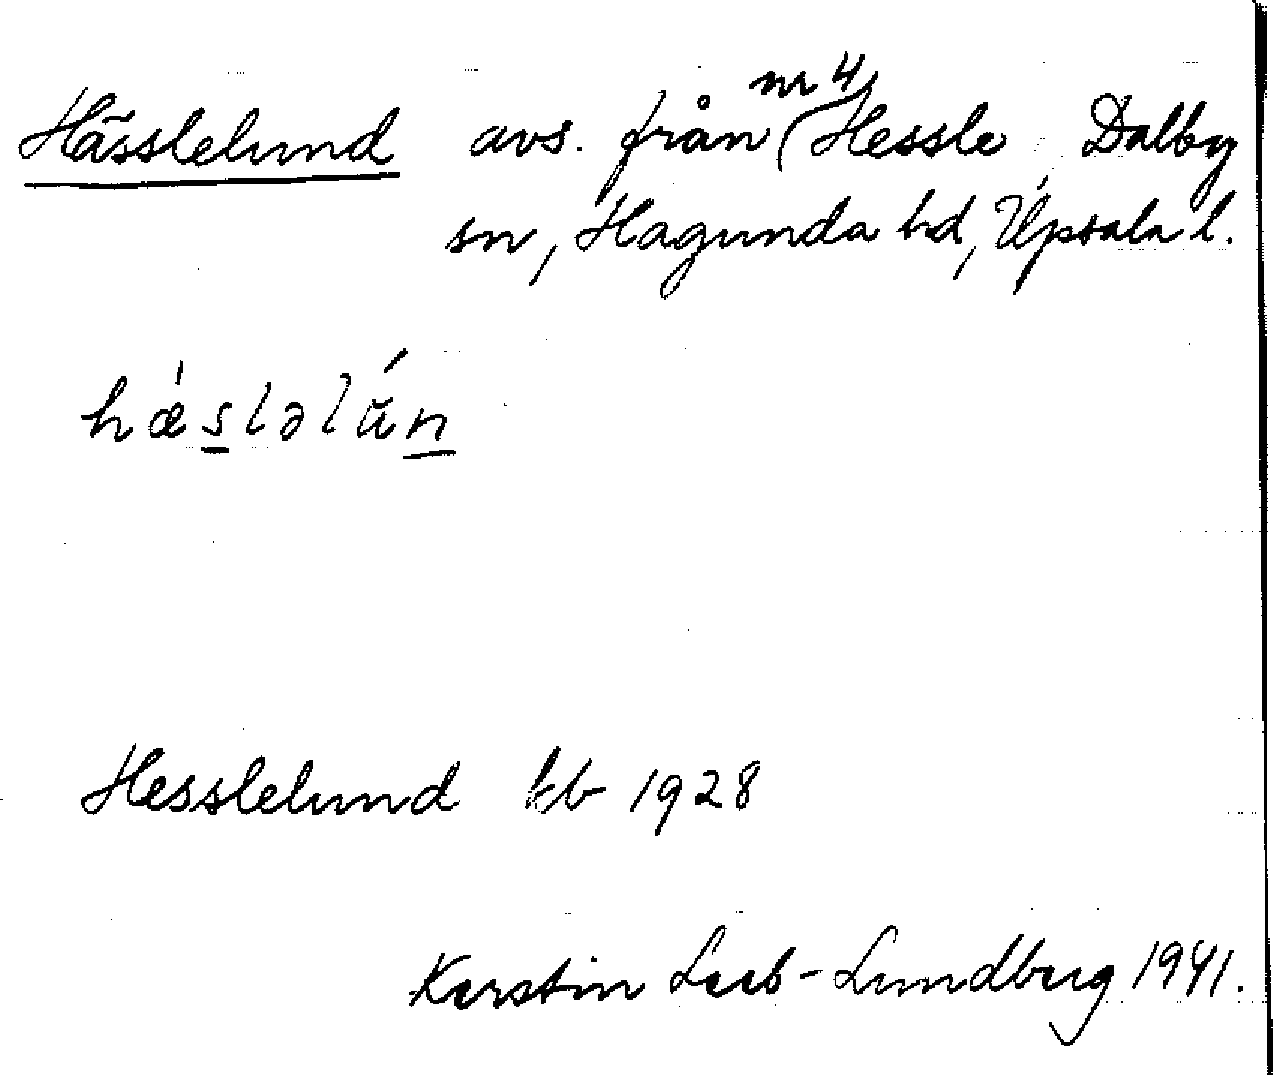 Hässlelund avs. från nr 4 Hessle, Dalby
sn, Hagunda hd, Upsala l.
hǽslələ́n
Hesslelund kb 1928
Kerstin Leeb-Lundberg 1941.